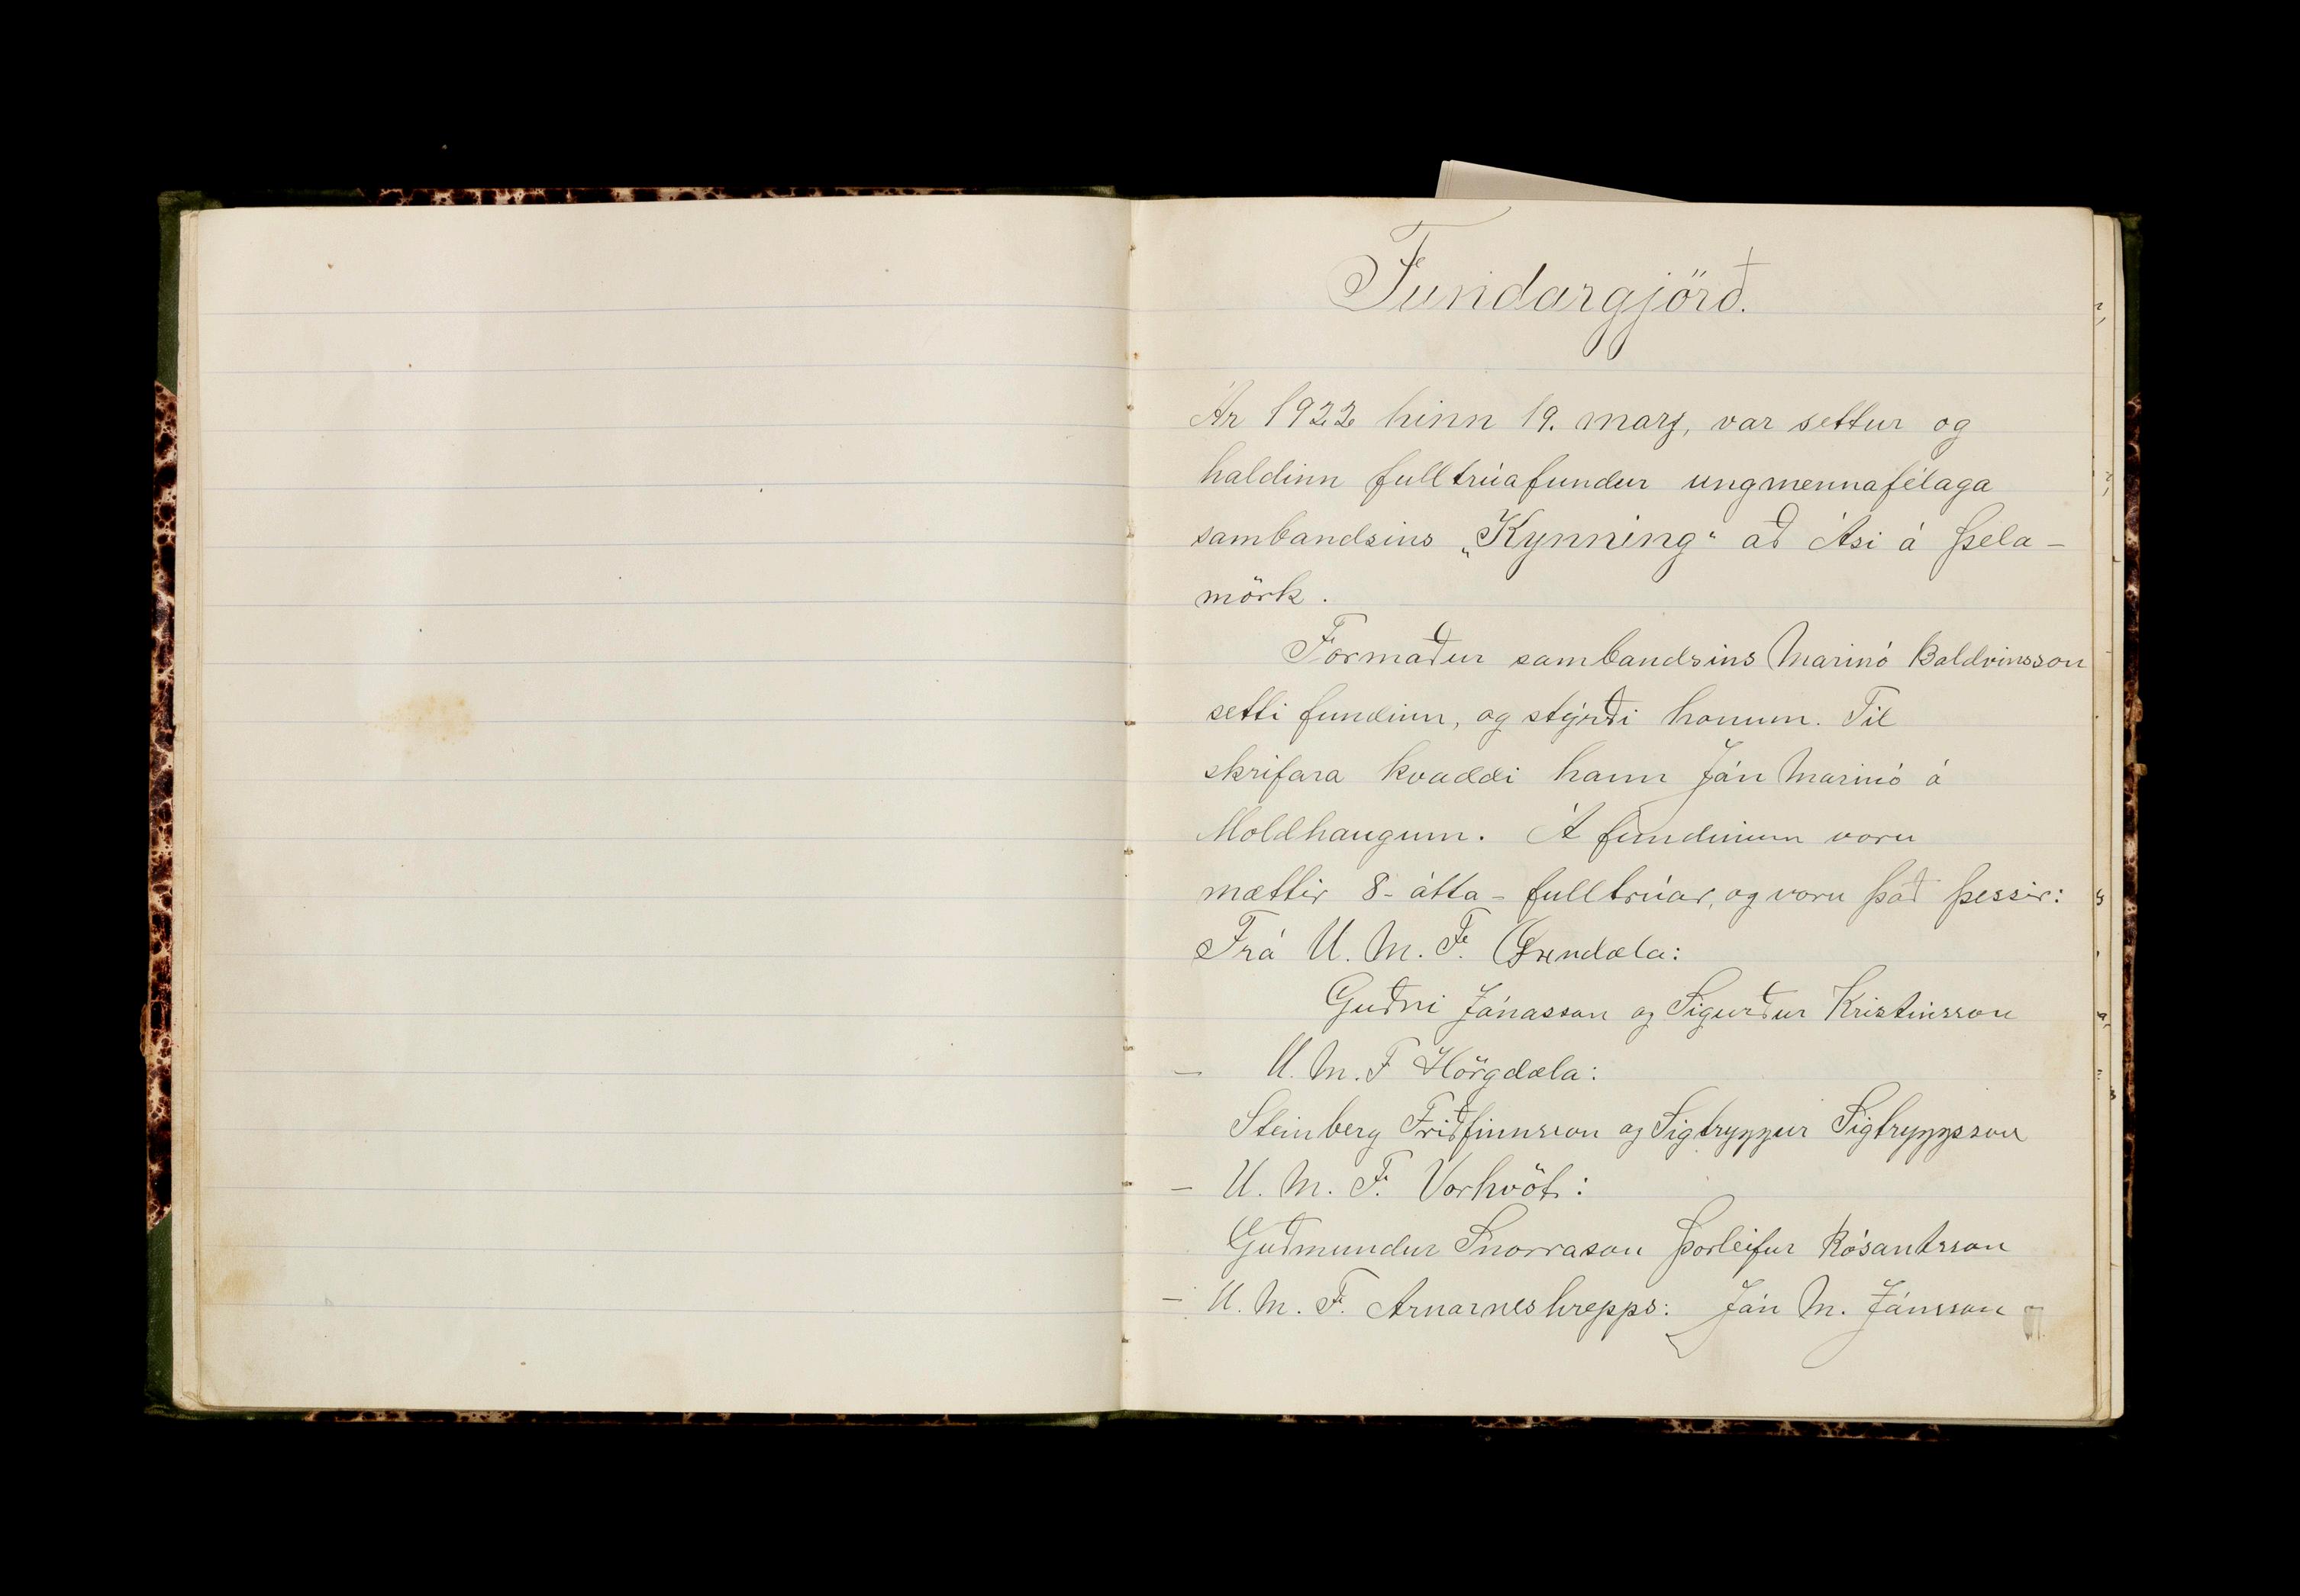 Fundargjörð.
Ár 1922 hinn 19. marz, var settur og
haldinn fulltrúafundur ungmennafélaga
sambandsins „Kynning“ að Ási á Þela-
mörk.
Formaður sambandsins Marinó Baldvinsson
setti fundinn, og stýrði honum. Til
skrifara kvaddi hann Jón Marinó á
Moldhaugum. Á fundinum voru
mættir 8 - átta - fulltrúar, og voru það þessir:
Frá U. M. F. Öxndæla:
Guðni Jónasson og Sigurður Kristinsson
— U. M. F Hörgdæla:
Steinberg Friðfinnsson og Sigtryggur Sigtryggsson
— U. M. F. Vorhvöt:
Guðmundur Snorrason Þorleifur Rósantsson
— U. M. F. Arnarneshrepps: Jón M. Jónsson og